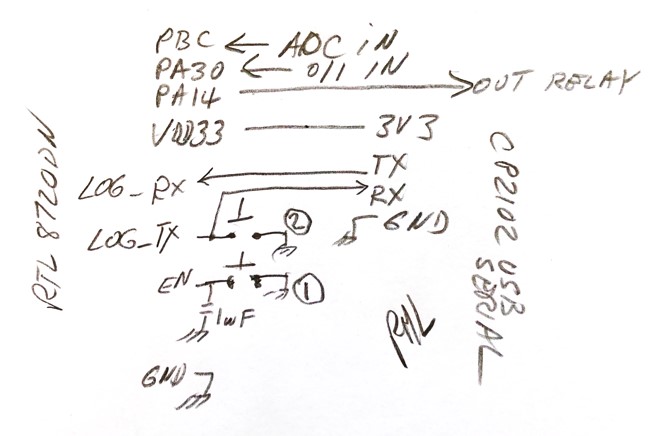 PBC ← ADC IN
PA30 ← 0/1 IN
PA14 → OUT RELAY
VDD33 — 3V3
TX
LOG_RX
RX
LOG_TX
②
GND
EN
①
1uF
GND
RTL8720DN
CP2102 USB
SERIAL